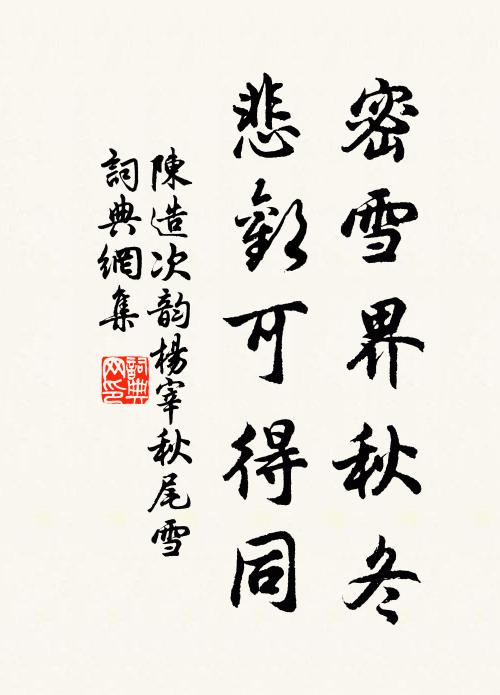 密雪界秋冬
悲歡可得同
陳造次韵楊宰秋尾雪
詞典網集
詞典網印